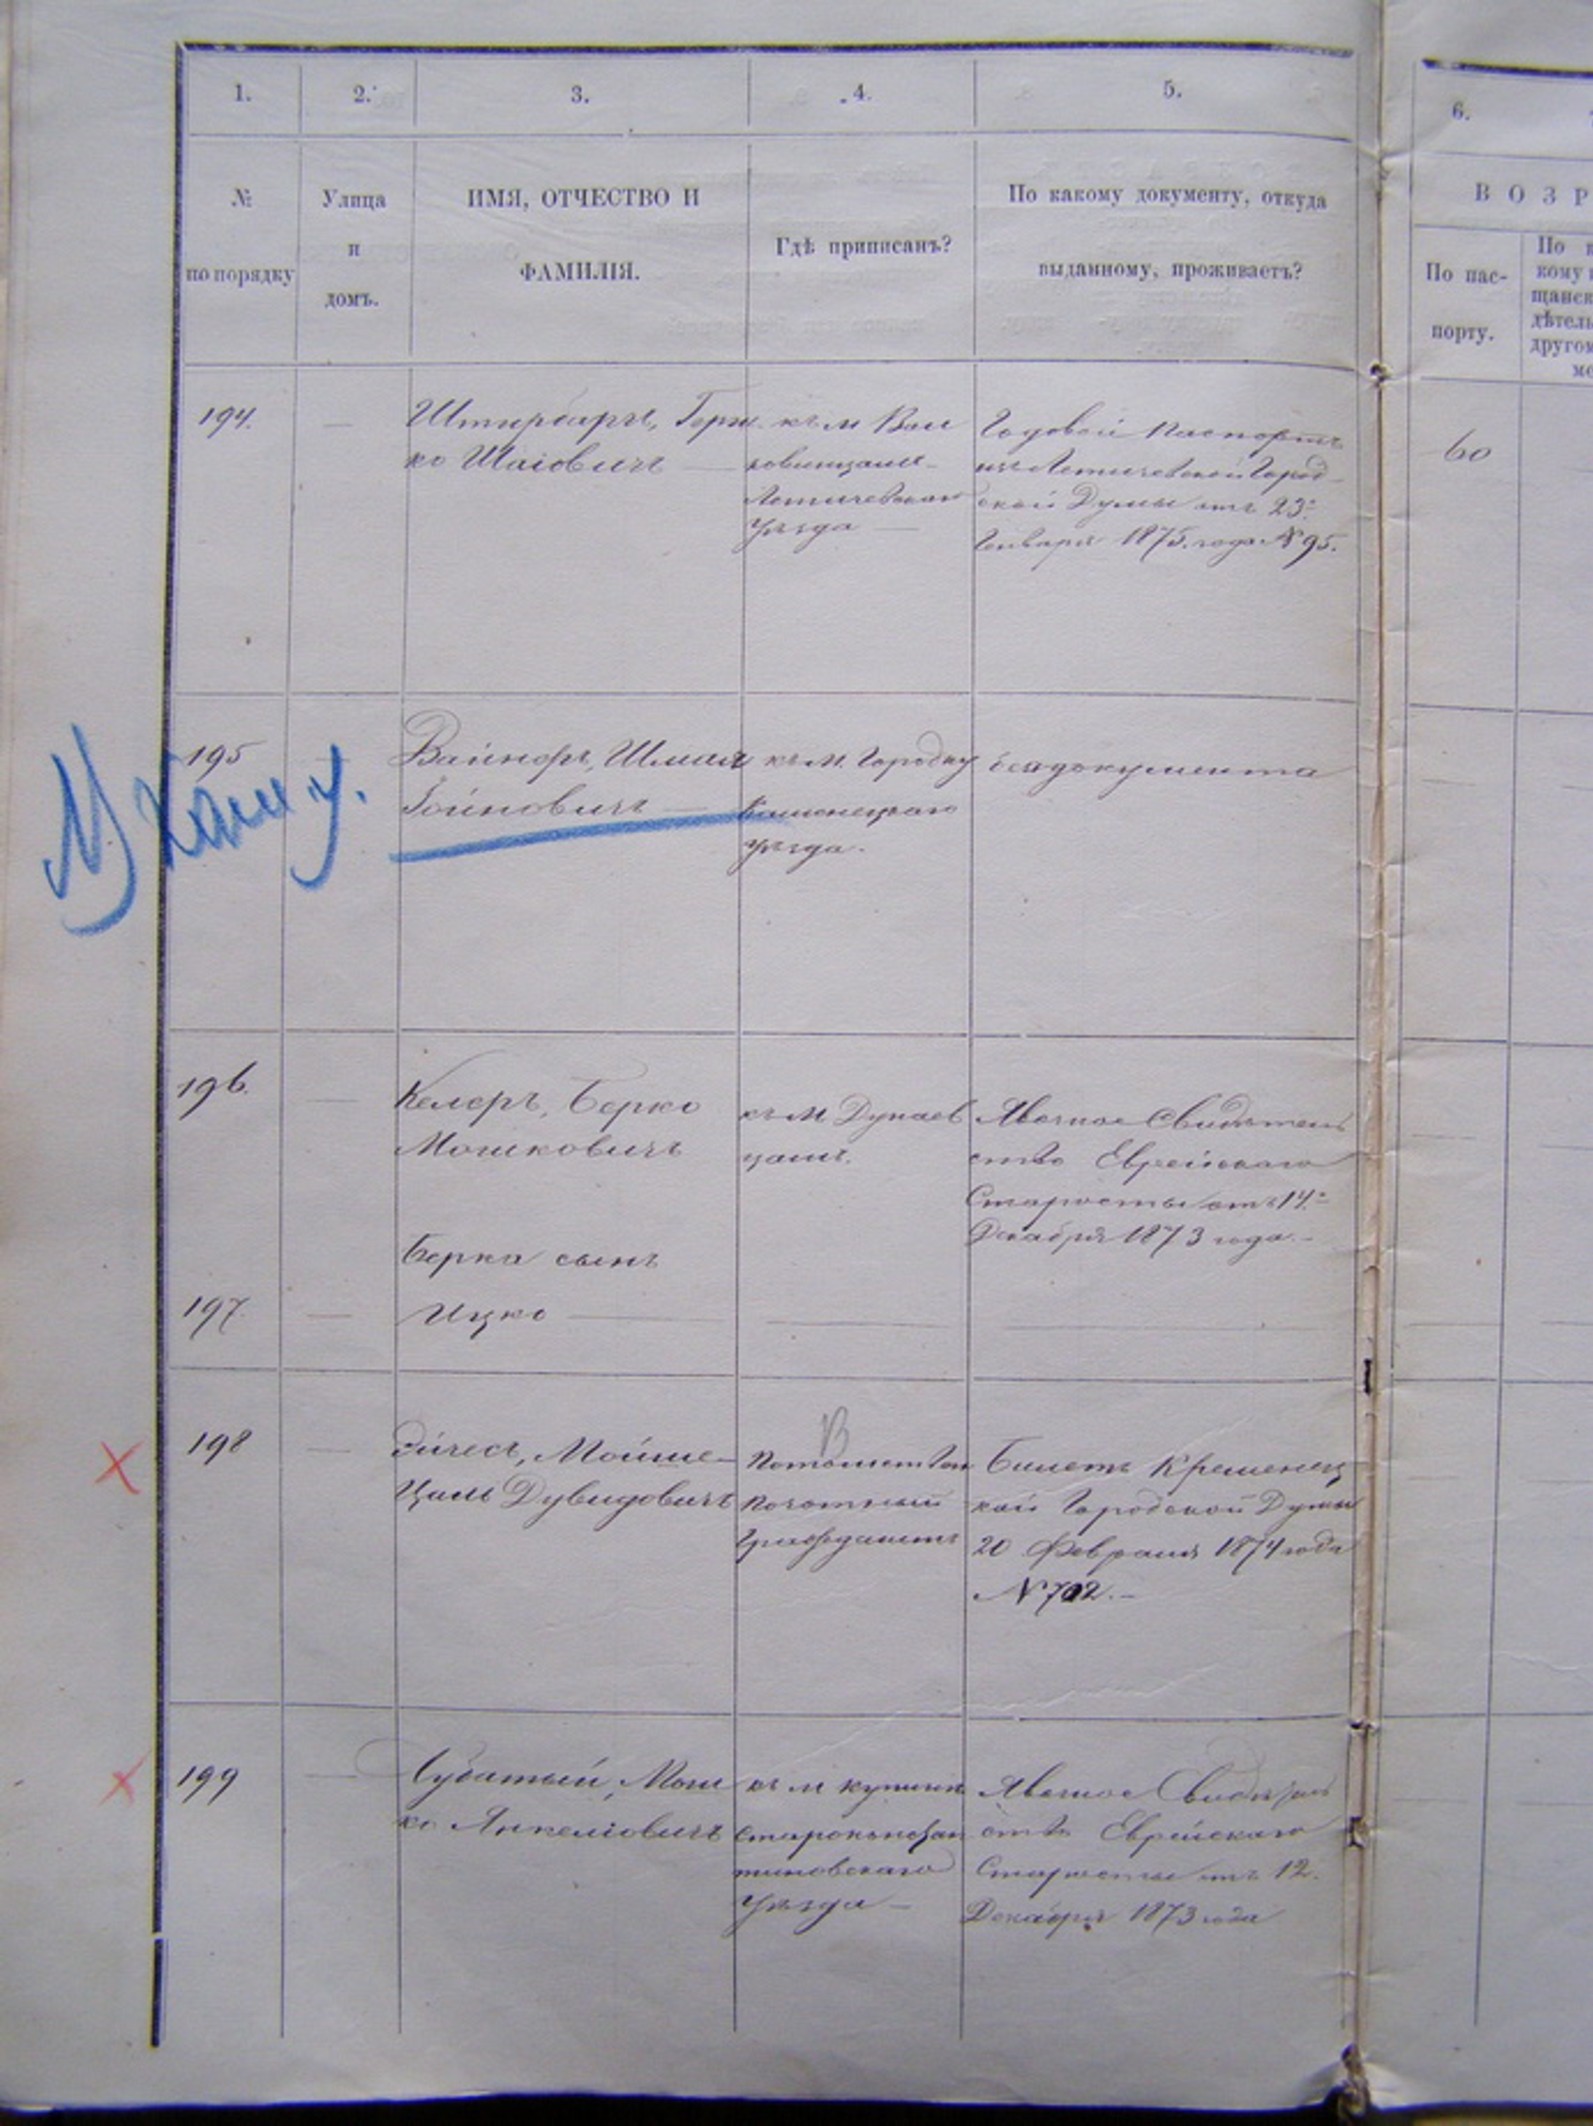 1. 2. 3. 4. 5. 6.
№ по порядку
Улица и домъ.
ИМЯ, ОТЧЕСТВО И
ФАМИЛІЯ.
Гдѣ приписанъ?
По какому документу, откуда
выданному, проживаетъ?
ВОЗР
По пас-
порту.
194.
ко Шаіовичъ
къ м
Летичевскаго
уѣзда
Годовой паспортъ
изъ Летичевской Город
ской Думы отъ 23
Января 1875 года № 95.
60
195
Вайнеръ, Шмая
къ м. Городку
Каменецкаго
уѣзда.
без документа
196.
Келеръ, Берко
Мошковичъ
къ м Дунаев
цамъ.
Явочное свидѣтель
ство Еврейскаго
Старосты отъ 14
Декабря 1873 года.
Берка сынъ
197.
Ицко
198
Эйчесъ, Мойше-
Цаль Дувидовичъ
Потомствен
почотный
гражданинъ
Билетъ Кременец
кой Городской Думы
20 Февраля 1874 года
№ 702.
199
Мош
ко Янкеліовичъ
къ м
Староконстан
тиновскаго
уѣзда
Явочное Свидѣтель
ство Еврейскаго
Старосты отъ 12.
Декабря 1873 года